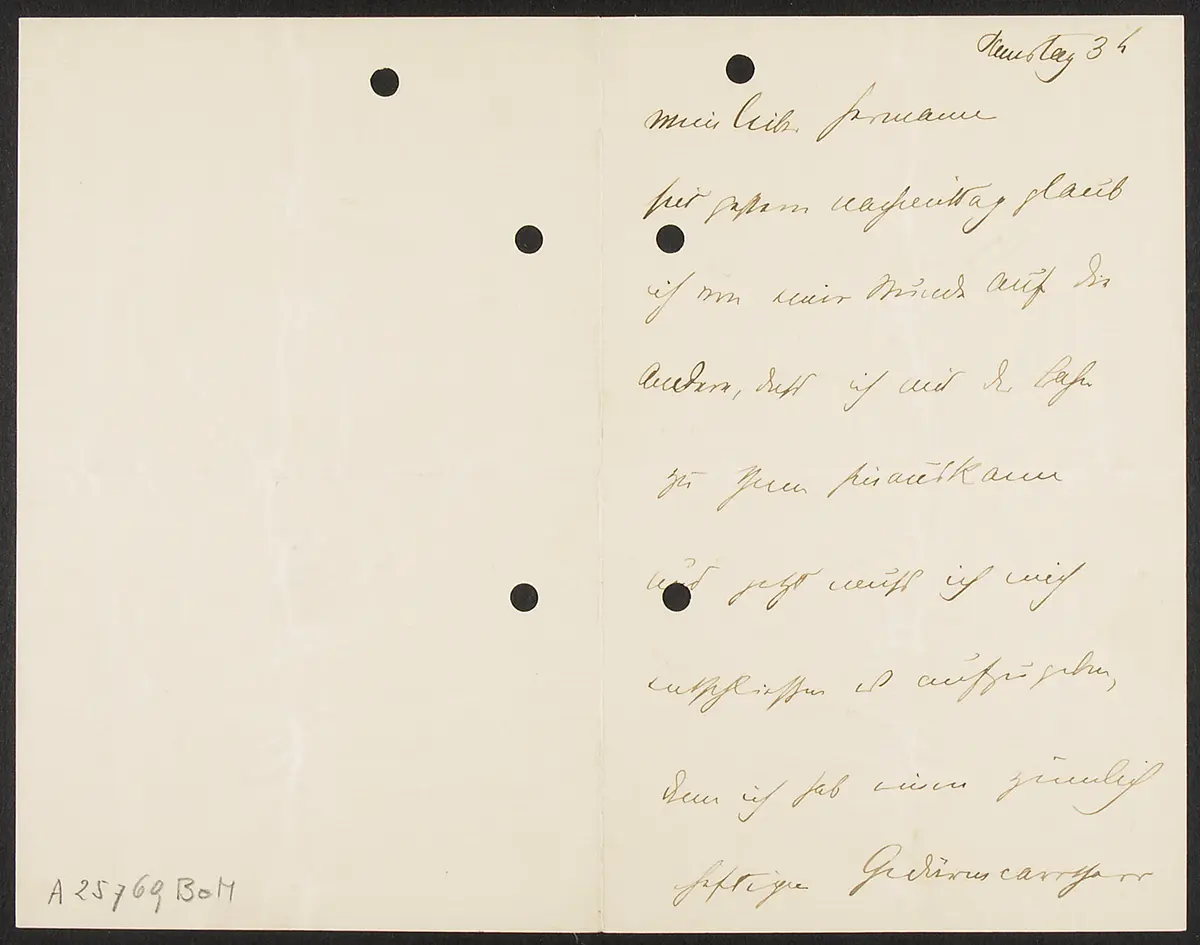 Samstag 3 h
mein lieber Hermann
seit gestern nachmittag glaub
ich von einer Stunde auf die
andere, dass ich mit der Bahn
zu Ihnen hinauskann
und jetzt muss ich mich
entschliessen es aufzugeben,
denn ich hab einen ziemlich
heftigen Gedärmcatarrh
A 25769 BaM